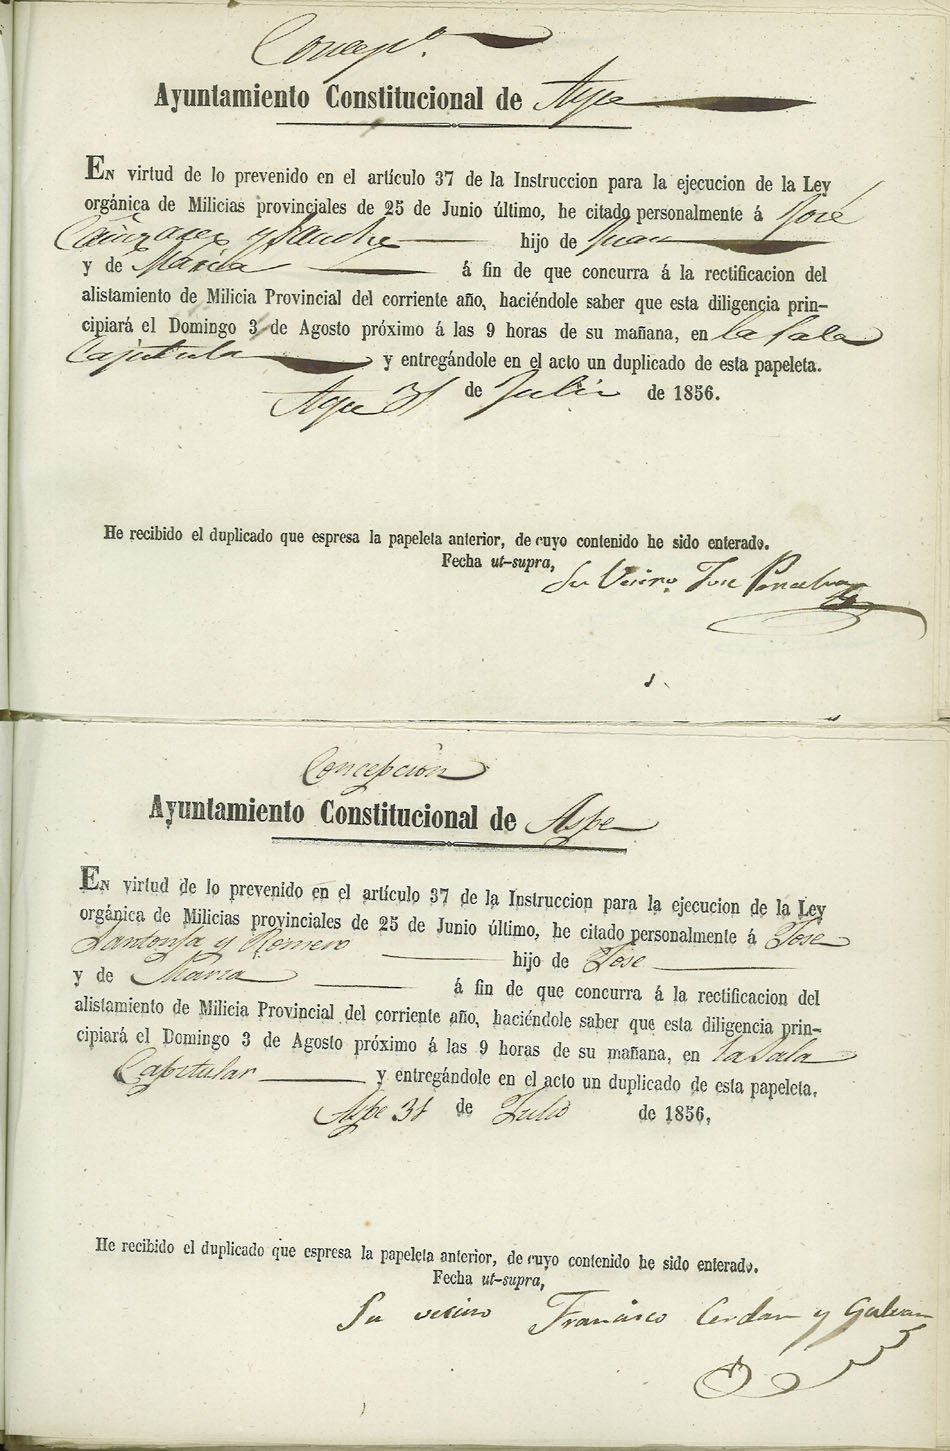 Concepn.
Ayuntamiento Constitucional de Aspe
EN virtud de lo prevenido en el artículo 37 de la Instruccion para la ejecucion de la Ley
orgánica de Milicias provinciales de 25 de Junio último, he citado personalmente á José
Cañizares y Sanche hijo de Juan
y de Maria á fin de que concurra á la rectificacion del
alistamiento de Milicia Provincial del corriente año, haciéndole saber que esta diligencia prin-
cipiará el Domingo 3 de Agosto próximo á las 9 horas de su mañana, en la Sala
Capitula y entregándole en el acto un duplicado de esta papeleta.
Aspe 31 de Julio de 1856.
He recibido el duplicado que espresa la papeleta anterior, de cuyo contenido he sido enterado.
Fecha ut-supra,
Su Vecino Jose
Concepcion
Ayuntamiento Constitucional de Aspe
EN virtud de lo prevenido en el artículo 37 de la Instruccion para la ejecucion de la Ley
orgánica de Milicias provinciales de 25 de Junio último, he citado personalmente á Jose
Santonja y Romero hijo de Jose
y de Maria á fin de que concurra á la rectificacion del
alistamiento de Milicia Provincial del corriente año, haciéndole saber que esta diligencia prin-
cipiará el Domingo 3 de Agosto próximo á las 9 horas de su mañana, en la Sala
Capitular y entregándole en el acto un duplicado de esta papeleta.
Aspe 31 de Julio de 1856.
He recibido el duplicado que espresa la papeleta anterior, de cuyo contenido he sido enterado.
Fecha ut-supra,
Su vecino Francisco Cerdan y Galvan